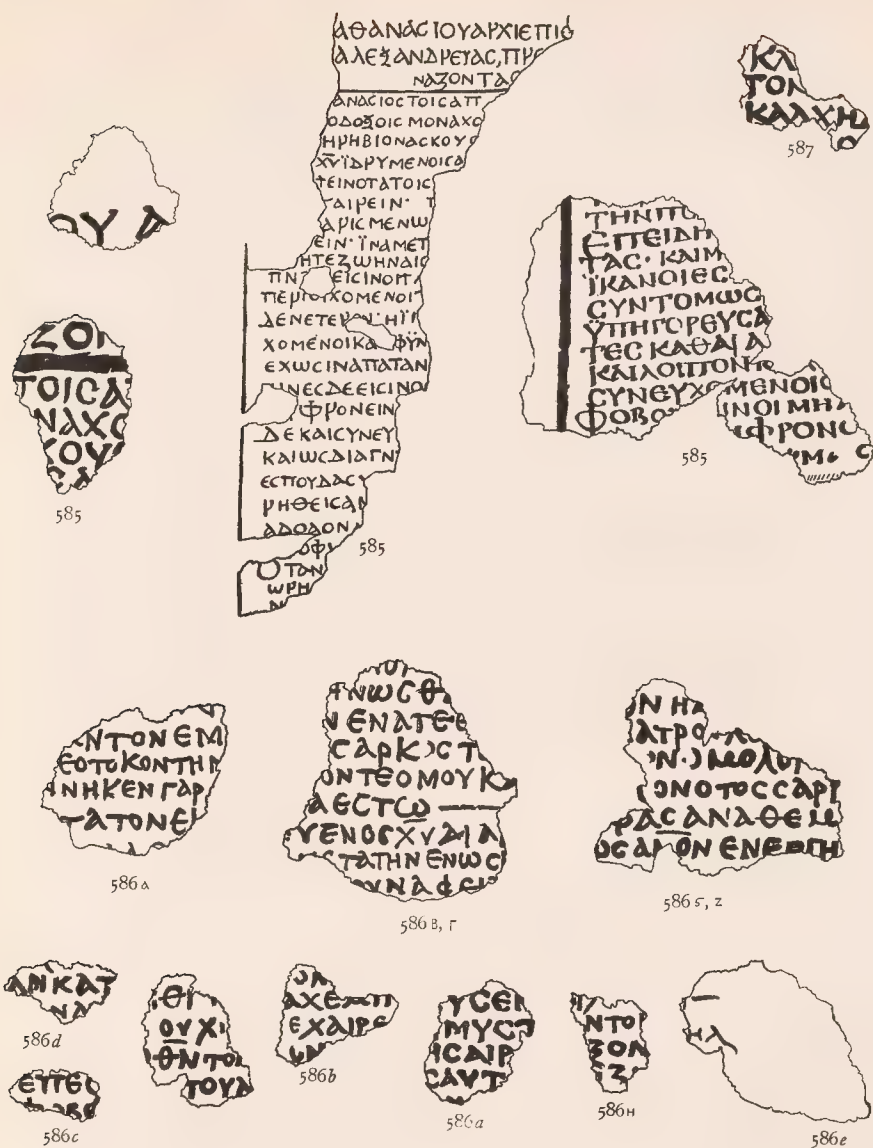 ΑΘΑΝΑϹΙΟΥΑΡΧΙΕΠΙϹ
ΑΛΕΞΑΝΔΡΕΥΑϹ,ΠΡΕ
ΝΑΖΟΝΤΑϹ
ΑΝΑϹΙΟϹΤΟΙϹΑΠ
ΟΔΟΞΟΙϹΜΟΝΑΧΟ
ΗΡΗΒΙΟΝΑϹΚΟΥϹ
ΧΥΪΔΡΥΜΕΝΟΙϹΑ
ΤΕΙΝΟΤΑΤΟΙϹ
ΑΙΡΕΙΝ· Τ
ΑΡΙϹΜΕΝΩ
ΕΙΝ·ΪΝΑΜΕΤ
ΗΤΕΖΩΗΝΑΙϹ
ΠΝ ΕΙϹΙΝΟΙΤ
ΠΕΡΙΟΙΧΟΜΕΝΟΙΤ
ΔΕΝΕΤΕΡΟΝ·ΗΪ
ΧΟΜΕΝΟΙΚΑ ΦΫΝ
ΕΧΩϹΙΝΑΠΑΤΑΝ
ΗΝΕϹΔΕΕΙϹΙΝΟ
ΦΡΟΝΕΙΝ
ΔΕΚΑΙϹΥΝΕΥ
ΚΑΙΩϹΔΙΑΓΝ
ΕϹΠΟΥΔΑϹΥ
ΡΗΘΕΙϹΑΝ
ΑΔΟΛΟΝ
ΟΦΥ
ΟΤΑΝ
ΩΡΗ
585
ΚΛ
ΤΟΝ
ΚΑΛΧΗ
Ο
587
ΟΥ Α
ΖΟΝ
ΤΟΙϹΑ
ΝΑΧΟ
ΚΟΥϹ
585
ΤΗΝΠΟ
ΕΠΕΙΔΗ
ΤΑϹ· ΚΑΙΜ
ΪΚΑΝΟΙΕϹ
ϹΥΝΤΟΜΩϹ
ΫΠΗΓΟΡΕΥϹΑ
ΤΕϹΚΑΘΑΙΑ
ΚΑΙΛΟΙΠΟΝΤ
ϹΥΝΕΥΧΟΜΕΝΟΙϹ
ΦΟΒΟ ΙΝΟΙΜΗ
ΦΡΟΝΟ
585
ΝΤΟΝΕΜ
ΕΟΤΟΚΟΝΤΗΝ
ΙΝΗΚΕΝΓΑΡ
ΤΑΤΟΝΕΙ
586Α
ΝΩϹΘ
ΝΕΝΑΤΕΘ
ϹΑΡΚΟϹΤ
ΟΝΤΕΟΜΟΥΚ
ΑΕϹΤΩ
ΓΕΝΟϹΧΥΑΙΑ
ϹΤΑΤΗΝΕΝΩϹ
ΟΥΝΑΦΕΙ
586Β, Γ
ΟΝΗ
ΑΤΡΟ
ΟΝ·ΟΜΟΛΟΓ
ΟΝΟΤΟϹϹΑΡΓ
ΡΑϹΑΝΑΘΕΜ
ΟϹΑΠΟΝΕΝΕΡΓΗ
586Ϛ, Ζ
ΑΝΚΑΤ
ΝΑ
586d
ΕΠΕΙ
586c
ΘΙ
ΟΥΧΙ
ΘΝΤΟ
ΤΟΥΛ
ΟΛ
ΑΧΕΜΠ
ΕΧΑΙΡΕ
ΩΝ
586b
ΥϹΕΙ
ΜΥϹΤ
ΙϹΑΙΡ
ϹΑΥΤ
586a
ΝΤΟΡ
ΖΟΛ
ΙΖ
586Η
ΗΛ
586e